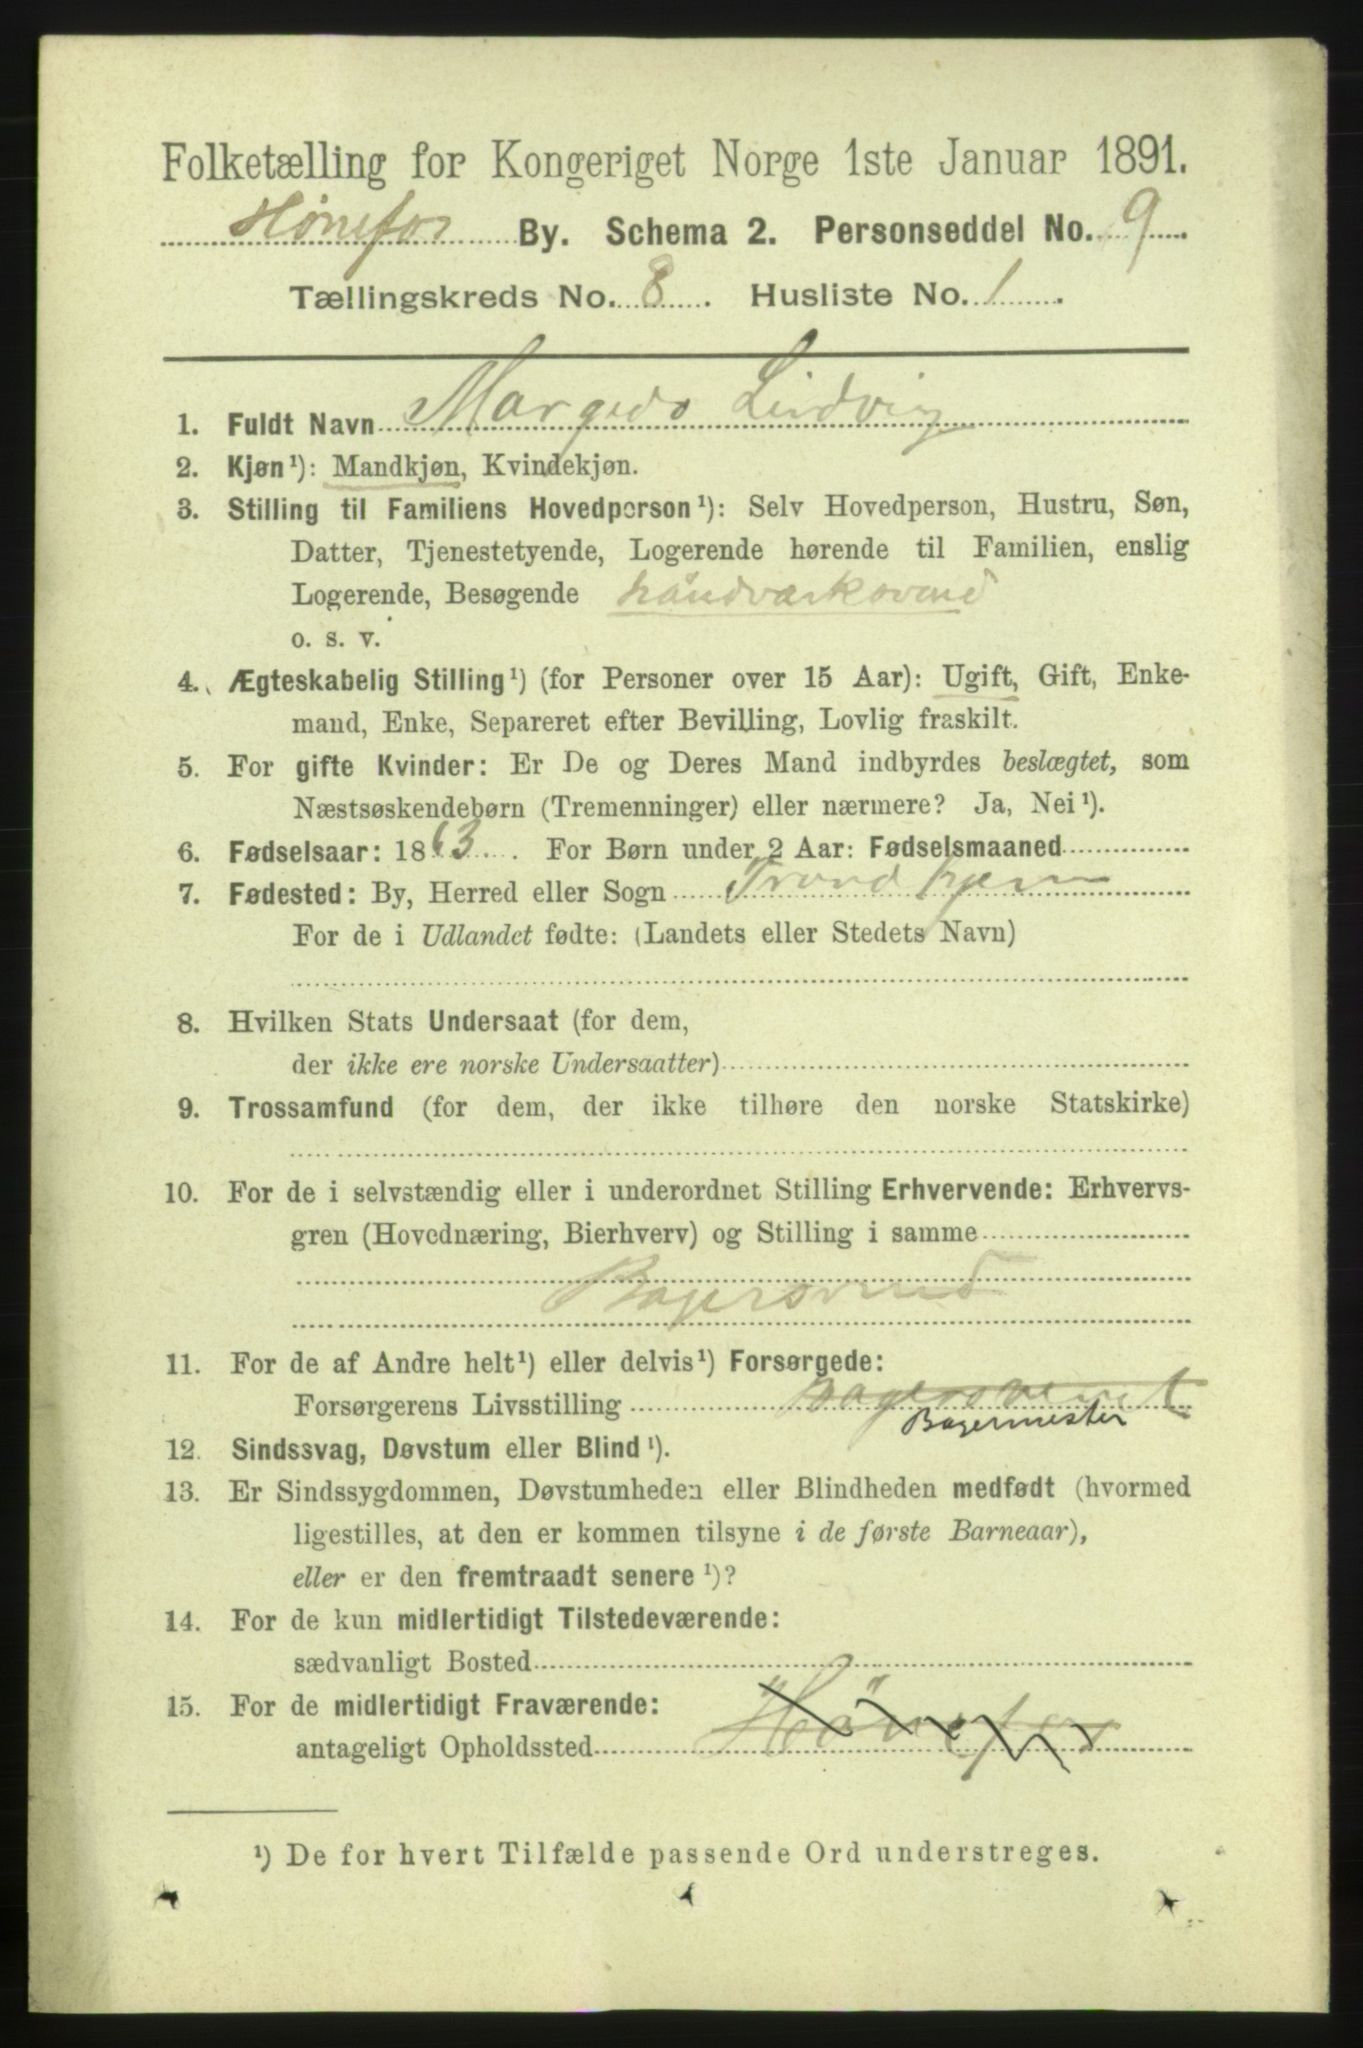 Folketælling for Kongeriget Norge 1ste Januar 1891.
Hønefos By. Schema 2. Personseddel No. 9
Tællingskreds No. 8. Husliste No. 1.
1. Fuldt Navn Margido Lindvig
2. Kjøn¹): Mandkjøn, Kvindekjøn.
3. Stilling til Familiens Hovedperson¹): Selv Hovedperson, Hustru, Søn,
Datter, Tjenestetyende, Logerende hørende til Familien, enslig
Logerende, Besøgende håndværksvend
o. s. v.
4. Ægteskabelig Stilling¹) (for Personer over 15 Aar): Ugift, Gift, Enke-
mand, Enke, Separeret efter Bevilling, Lovlig fraskilt.
5. For gifte Kvinder: Er De og Deres Mand indbyrdes beslægtet, som
Næstsøskendebørn (Tremenninger) eller nærmere? Ja, Nei¹).
6. Fødselsaar: 1863. For Børn under 2 Aar: Fødselsmaaned
7. Fødested: By, Herred eller Sogn Trondhjem
For de i Udlandet fødte: (Landets eller Stedets Navn)
8. Hvilken Stats Undersaat (for dem,
der ikke ere norske Undersaatter)
9. Trossamfund (for dem, der ikke tilhøre den norske Statskirke)
10. For de i selvstændig eller i underordnet Stilling Erhvervende: Erhvervs-
gren (Hovednæring, Bierhverv) og Stilling i samme
Bagersvend
11. For de af Andre helt¹) eller delvis¹) Forsørgede:
Forsørgerens Livsstilling bagersvend
Bagermester
12. Sindssvag, Døvstum eller Blind¹).
13. Er Sindssygdommen, Døvstumheden eller Blindheden medfødt (hvormed
ligestilles, at den er kommen tilsyne i de første Barneaar),
eller er den fremtraadt senere¹)?
14. For de kun midlertidigt Tilstedeværende:
sædvanligt Bosted
15. For de midlertidigt Fraværende:
antageligt Opholdssted Hönefos
¹) De for hvert Tilfælde passende Ord understreges.